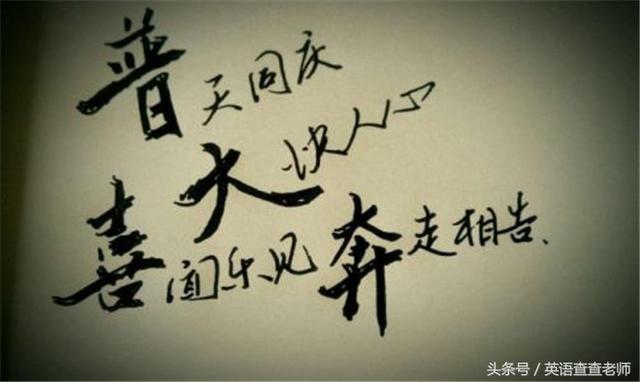 普天同庆
大快人心
喜闻乐见
奔走相告、
头条号 / 英语查查老师